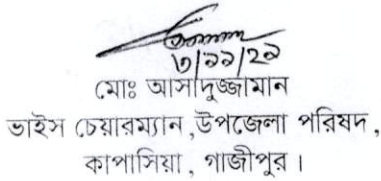 ৩/১১/২১
মোঃ আসাদুজ্জামান
ভাইস চেয়ারম্যান ,উপজেলা পরিষদ ,
কাপাসিয়া , গাজীপুর ।